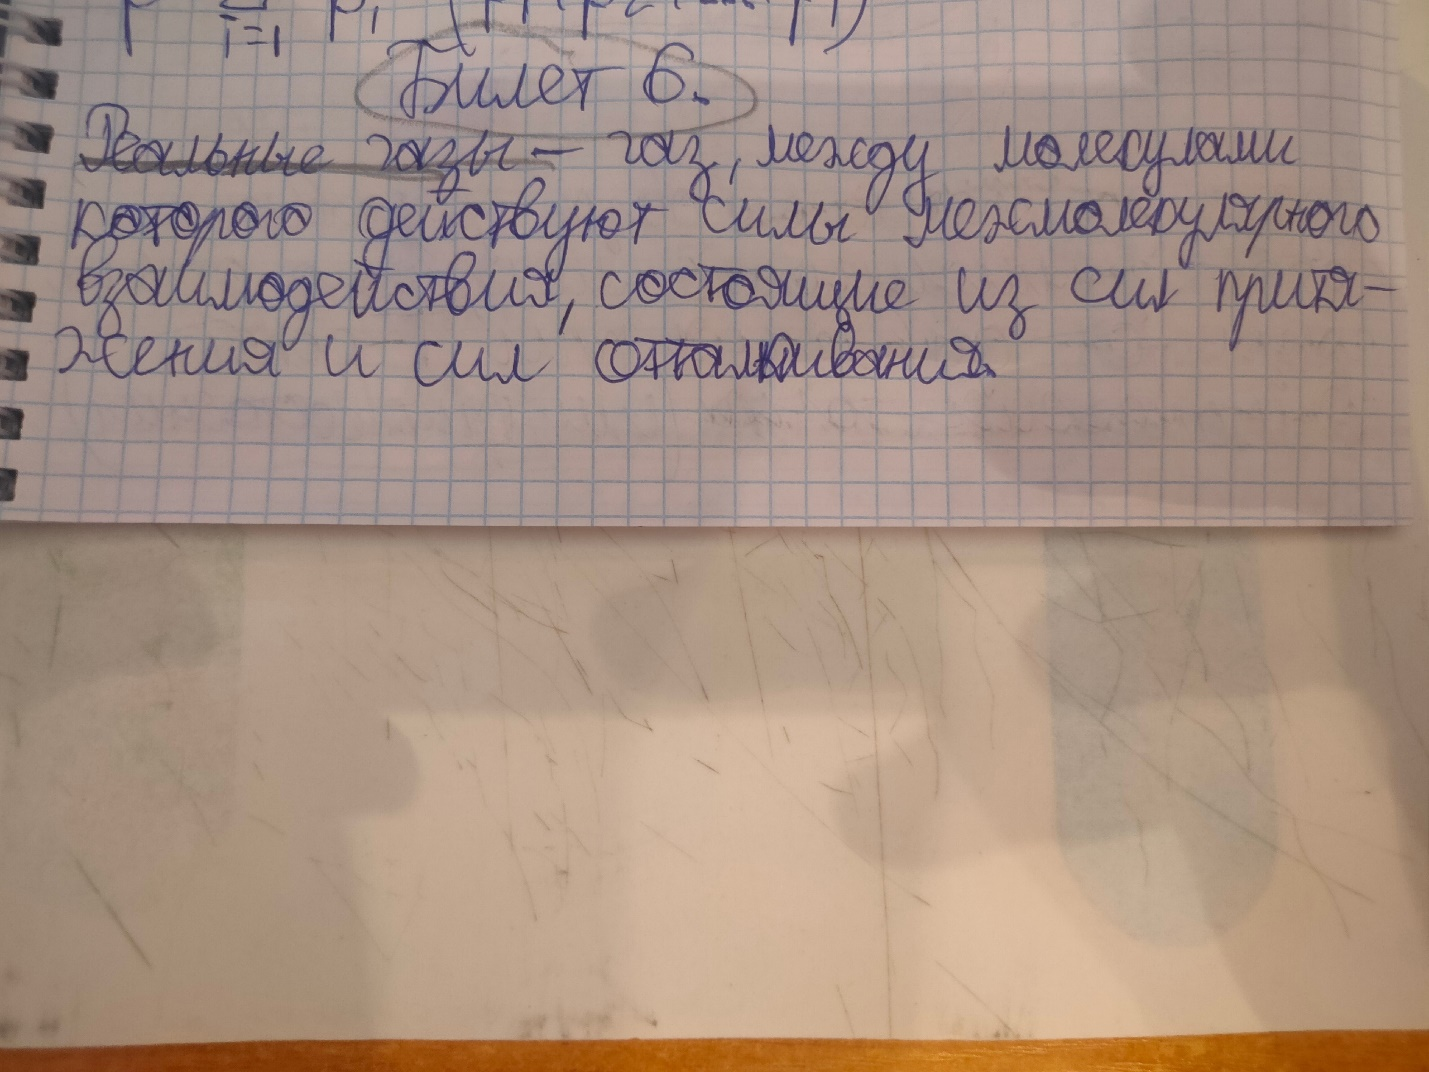 i=1
Билет 6.
Реальные газы – газ, между молекулами
которого действуют силы межмолекулярного
взаимодействия, состоящие из сил притя-
жения и сил отталкивания.